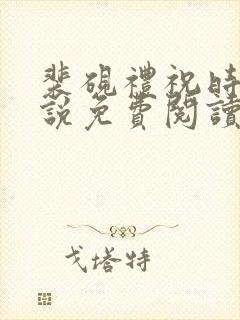 裴硯禮祝時
說免費閱讀
戈塔特